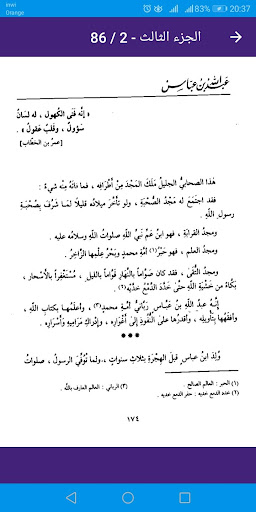 inwi
Orange
83%
20:37
الجزء الثالث - 2 / 86
عبد الله بن عباس
« إنّه فتى الكهول ، له لسانٌ
سَؤولٌ ، وقلبٌ عقولٌ » .
[عمر بن الخطاب]
هذا الصحابيُّ الجليلُ مَلَكَ المجدَ من أطرافِه ، فما فاتَهُ منه شيءٌ :
فقد اجتمعَ له مجدُ الصُّحبةِ ، ولو تأخَّرَ ميلادُه قليلًا لَما شَرُفَ بصُحبةِ
رسولِ اللهِ .
ومجدُ القرابةِ ، فهو ابنُ عمِّ نبيِّ اللهِ صلواتُ اللهِ وسلامُه عليه .
ومجدُ العلمِ ، فهو حَبْرُ (١) أمةِ محمدٍ وبحرُ علمِها الزاخرُ .
ومجدُ التُّقى ، فقد كان صوّامًا بالنّهارِ قوّامًا بالليلِ ، مستغفرًا بالأسحارِ ،
بكّاءً من خشيةِ اللهِ حتى خدَّدَ الدمعُ خدَّيه (٢) .
إنّه عبدُ اللهِ بنُ عبّاسٍ ربّانيُّ أمةِ محمدٍ (٣) ، وأعلمُها بكتابِ اللهِ ،
وأفقهُها بتأويلِه ، وأقدرُها على النُّفوذِ إلى أغوارِه ، وإدراكِ مراميهِ وأسرارِه .
***
وُلِدَ ابنُ عباسٍ قبلَ الهجرةِ بثلاثِ سنواتٍ ، ولما تُوُفِّيَ الرسولُ ، صلواتُ
(١) الحبر : العالم الصالح .
(٣) الرباني : العالم العارف بالله .
(٢) خدد الدمع خديه : حفر الدمع خديه .
١٧٤